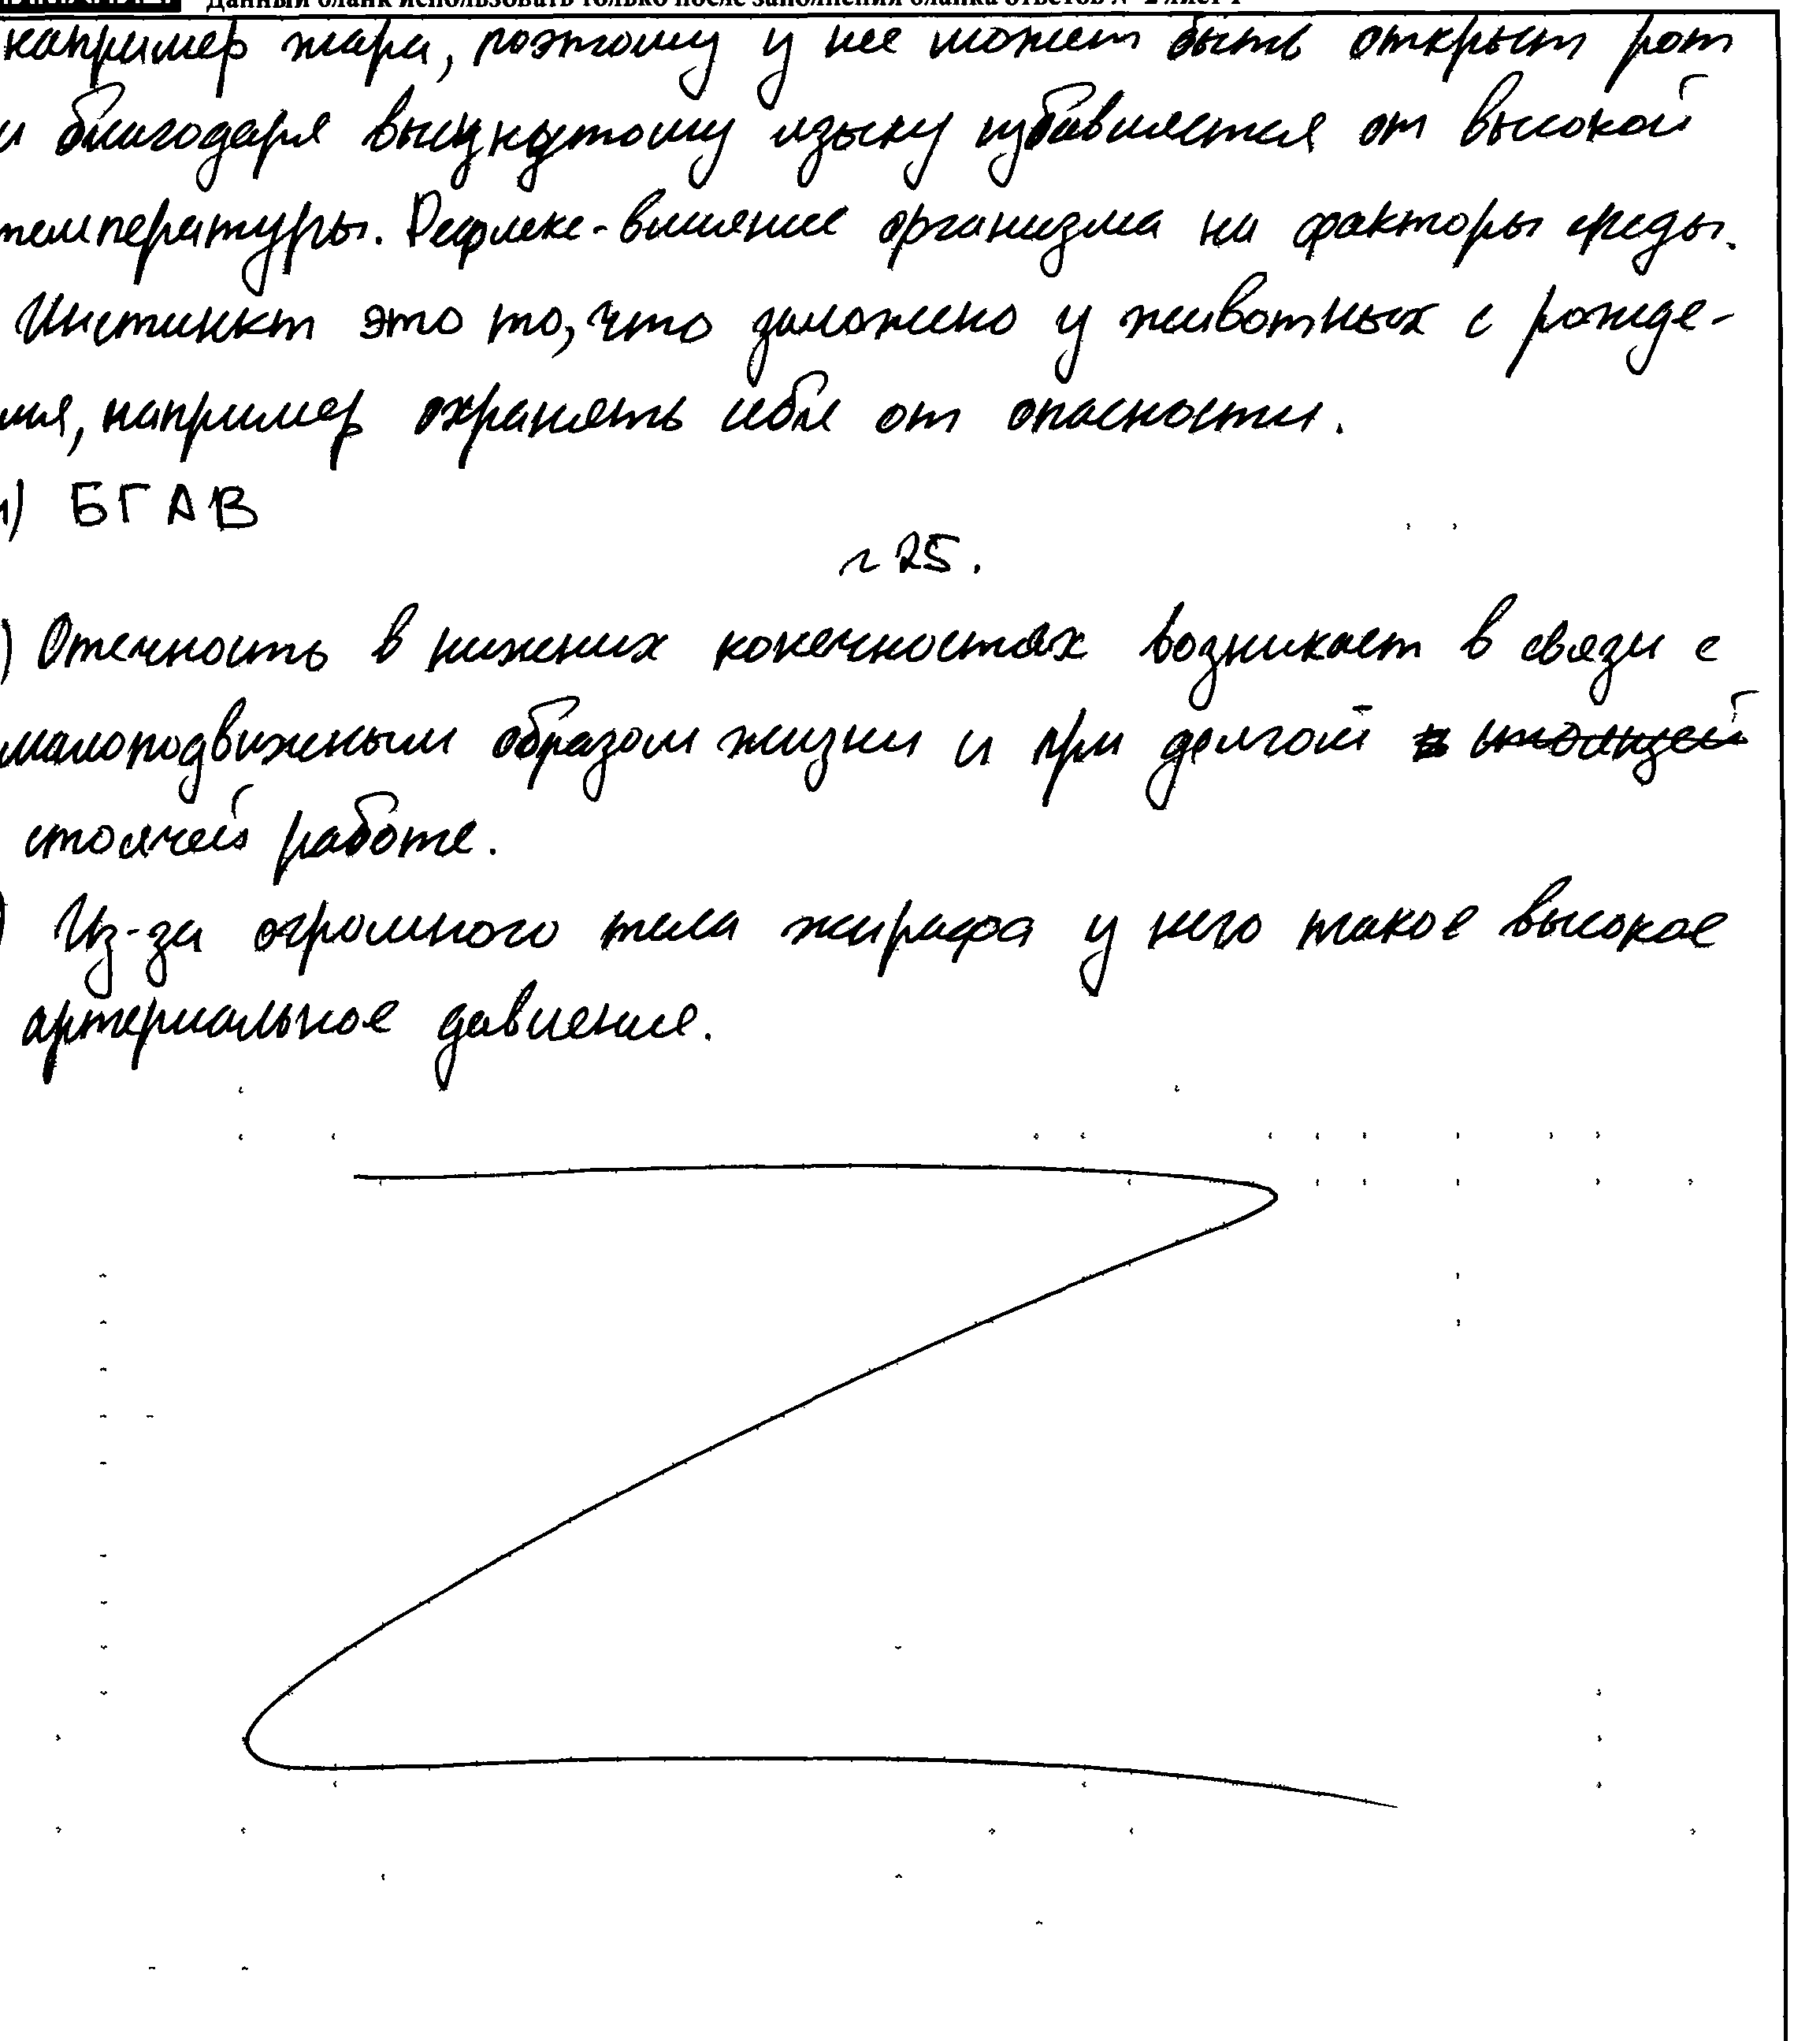 Данный бланк использовать только после заполнения бланка ответов № 2 лист 1
например жара, поэтому у нее может быть открыт рот
и благодаря высунутому языку избавляется от высокой
температуры. Рефлекс-влияние организма на факторы среды.
Инстинкт это то, что заложено у животных с рожде-
ния, например охранять себя от опасности.
) БГАВ
№25.
) Отечность в нижених конечностях возникает в связи с
малоподвижным образом жизни и при долгой стоящей
стоячей работе.
) Из-за огромного тела жирафа у него такое высокое
артериальное давление.